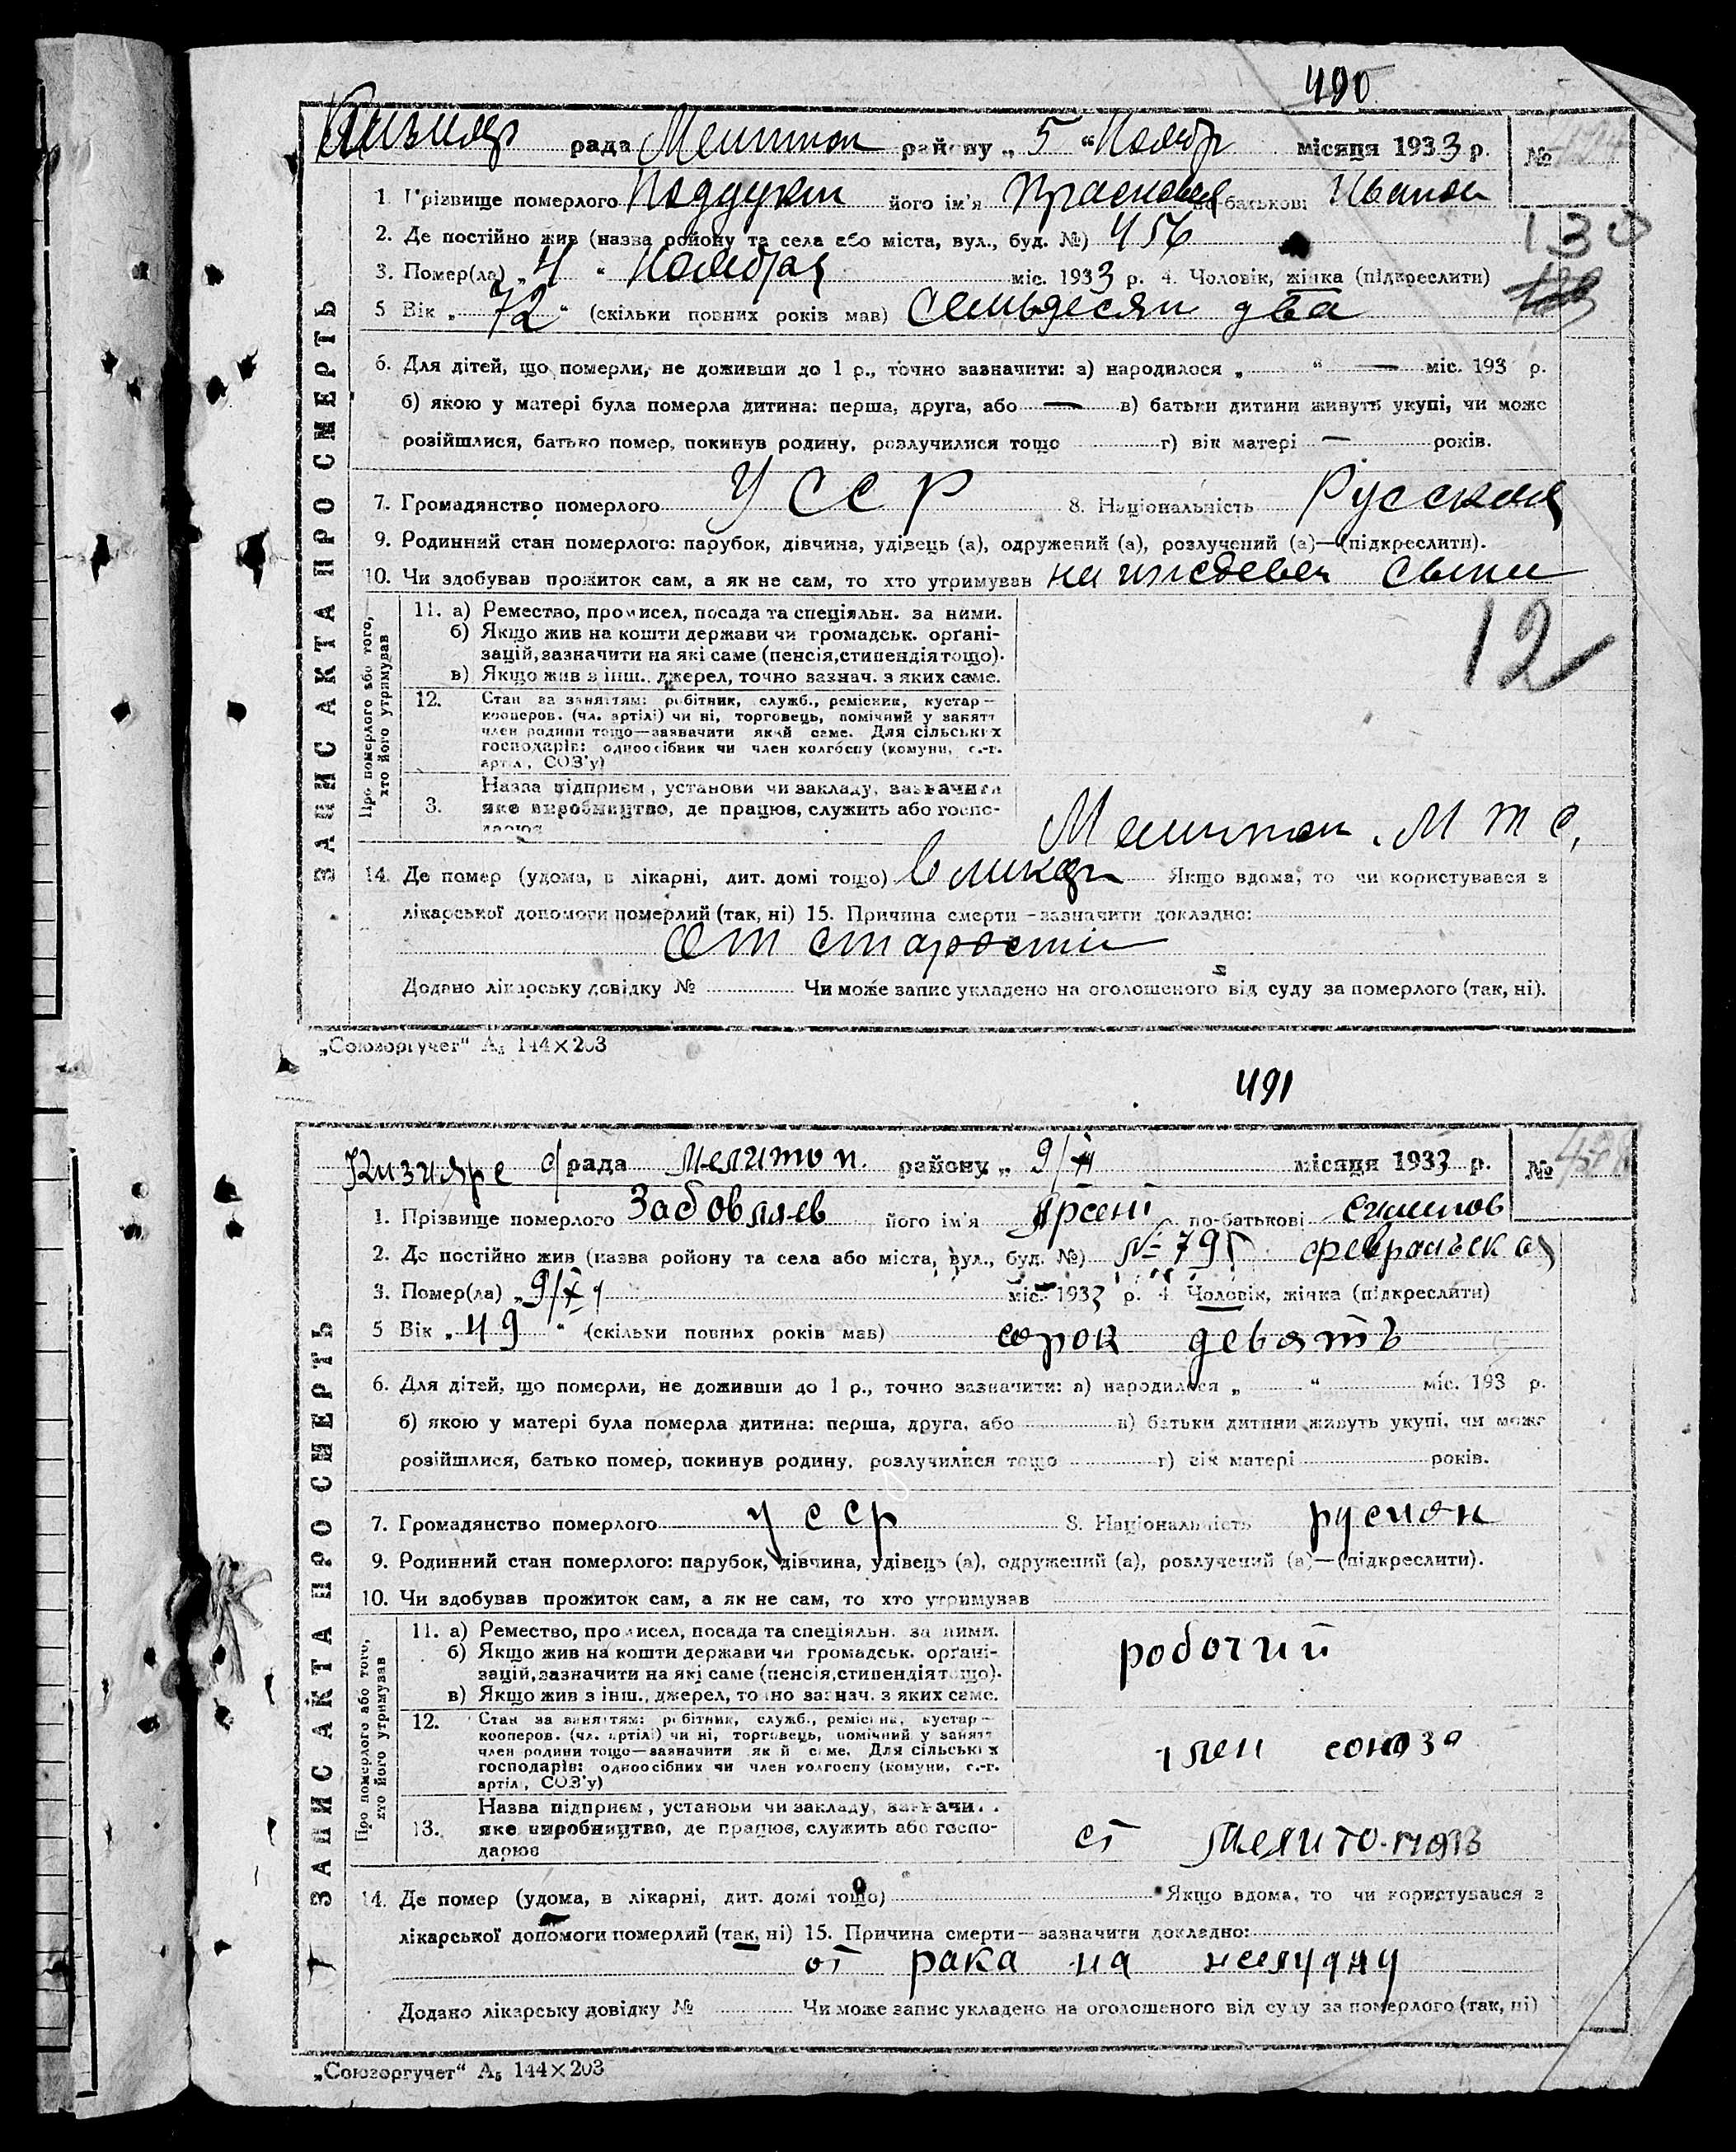 490
Кизияр рада Мелитоп району „ 5 “ Ноябр місяця 1933 р. №
1. Прізвище померлого його ім'я Прасковия по-батькові Иванов
130
2. Де постійно жив (назва ройону та села або міста, вул., буд. №) 456
3. Помер(ла) „ 4 “ Ноября міс. 1933 р. 4. Чоловік, жінка (підкреслити)
5 Вік „ 72 “ (скільки повних років мав) Семьдесят два
6. Для дітей, що померли, не доживши до 1 р., точно зазначити: а) народилося „ “ — міс. 193 р.
б) якою у матері була померла дитина: перша, друга, або — в) батьки дитини живуть укупі, чи може
розійшлися, батько помер, покинув родину, розлучилися тощо г) вік матері — років.
7. Громадянство померлого УССР 8. Національність Русская
9. Родинний стан померлого: парубок, дівчина, удівець (а), одружений (а), розлучений (а)—(підкреслити).
10. Чи здобував прожиток сам, а як не сам, то хто утримував на сына
12
ЗАПИС АКТА ПРО СМЕРТЬ
Про померлого або того, хто його утримував
11. а) Ремество, промисел, посада та спеціяльн. за ними.
б) Якщо жив на кошти держави чи громадськ. орґані-
зацій, зазначити на які саме (пенсія, стипендія тощо).
в) Якщо жив з інш. джерел, точно зазнач. з яких саме.
12. Стан за заняттям: робітник, служб., ремісник, кустар—
кооперов. (чл. артілі) чи ні, торговець, помічний у занятт
член родини тощо—зазначити який саме. Для сільських
господарів: одноосібник чи член колгоспу (комуни, с.-г.
артіл, СОЗ'у)
Назва підприєм, установи чи закладу, зазначити
3. яке виробництво, де працюв, служить або госпо-
дарюв
Мелитоп. М Т С,
14. Де помер (удома, в лікарні, дит. домі тощо) Якщо вдома, то чи користувався з
лікарської допомоги померлий (так, ні) 15. Причина смерти—зазначити докладно:
От старости
Додано лікарську довідку № Чи може запис укладено на оголошеного від суду за померлого (так, ні).
„Союзоргучет“ А₅ 144×203
491
Кизияре с/рада Мелитоп. району „ 9/XI місяця 1933 р. №
1. Прізвище померлого Забовляев його ім'я Арсені по-батькові
2. Де постійно жив (назва ройону та села або міста, вул., буд. №) № 795 февральская
3. Помер(ла) „ 9/XI міс. 1933 р. 4. Чоловік, жінка (підкреслити)
5 Вік „ 49 “ (скільки повних років мав) сорок девять
6. Для дітей, що померли, не доживши до 1 р., точно зазначити: а) народилося „ “ міс. 193 р.
б) якою у матері була померла дитина: перша, друга, або в) батьки дитини живуть укупі, чи може
розійшлися, батько помер, покинув родину, розлучилися тощо г) вік матері років.
7. Громадянство померлого УССР 8. Національність
9. Родинний стан померлого: парубок, дівчина, удівець (а), одружений (а), розлучений (а)—(підкреслити).
10. Чи здобував прожиток сам, а як не сам, то хто утримував
ЗАПИС АКТА ПРО СМЕРТЬ
Про померлого або того, хто його утримував
11. а) Ремество, промисел, посада та спеціяльн. за ними.
б) Якщо жив на кошти держави чи громадськ. орґані-
зацій, зазначити на які саме (пенсія, стипендія тощо).
в) Якщо жив з інш. джерел, точно зазнач. з яких саме.
робочий
12. Стан за заняттям: робітник, служб., ремісник, кустар—
кооперов. (чл. артілі) чи ні, торговець, помічний у занятт
член родини тощо—зазначити який саме. Для сільських
господарів: одноосібник чи член колгоспу (комуни, с.-г.
артіл, СОЗ'у)
член союза
Назва підприєм, установи чи закладу, зазначи
13. яке виробництво, де працюв, служить або госпо-
дарюв
ст
14. Де помер (удома, в лікарні, дит. домі тощо) Якщо вдома, то чи користувався з
лікарської допомоги померлий (так, ні) 15. Причина смерти—зазначити докладно:
от рака на желудку
Додано лікарську довідку № Чи може запис укладено на оголошеного від суду за померлого (так, ні)
„Союзоргучет“ А₅ 144×203